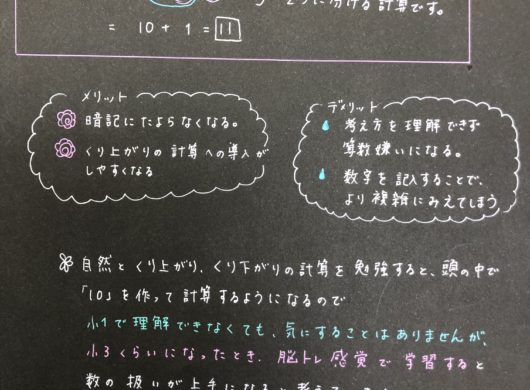 つに分ける計算です。
= 10 + 1 = 11
メリット
暗記にたよらなくなる。
くり上がりの計算への導入が
しやすくなる
デメリット
考え方を理解できず
算数嫌いになる。
数字を記入することで、
より複雑にみえてしまう
自然とくり上がり、くり下がりの計算を勉強すると、頭の中で
「10」を作って計算するようになるので
小1で理解できなくても、気にすることはありませんが、
小3くらいになったとき、脳トレ感覚で学習すると
数の扱いが上手になると考え